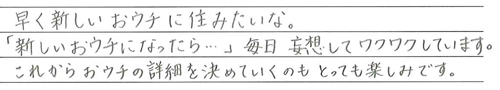 早く新しいおウチに住みたいな。
「新しいおウチになったら…」毎日 妄想してワクワクしています。
これからおウチの詳細を決めていくのもとっても楽しみです。